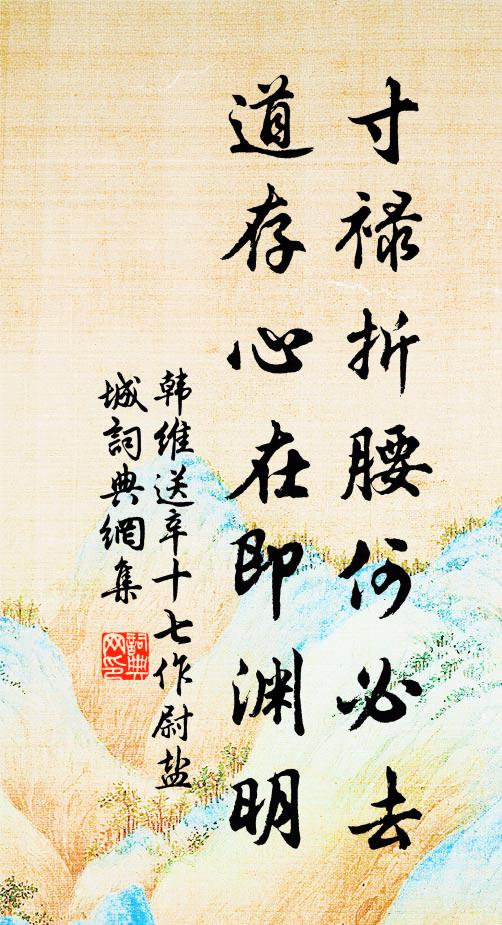 寸禄折腰何必去
道存心在即渊明
韩维送辛十七作尉盐
城詞典網集
詞典